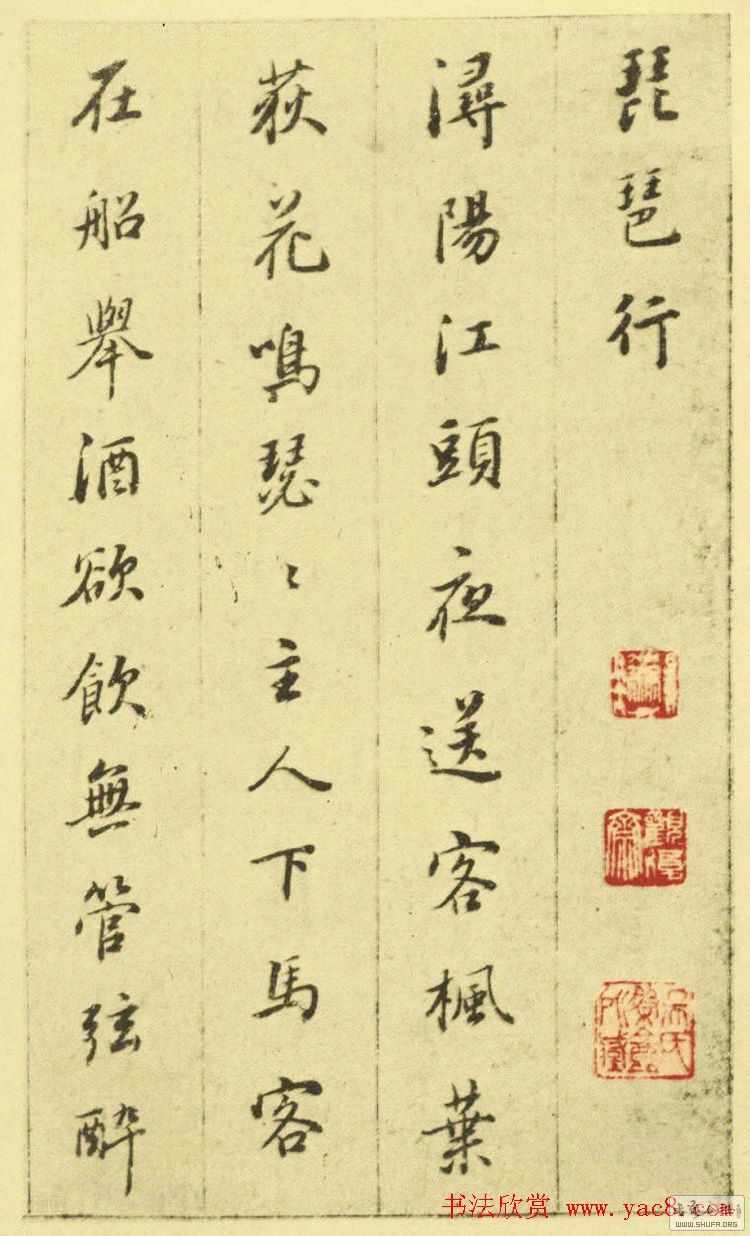 琵琶行
潯陽江頭夜送客楓葉
荻花鳴瑟〻主人下馬客
在船舉酒欲飲無管弦醉
書法欣赏 www.yac8.com
WWW.SHUFA.ORG